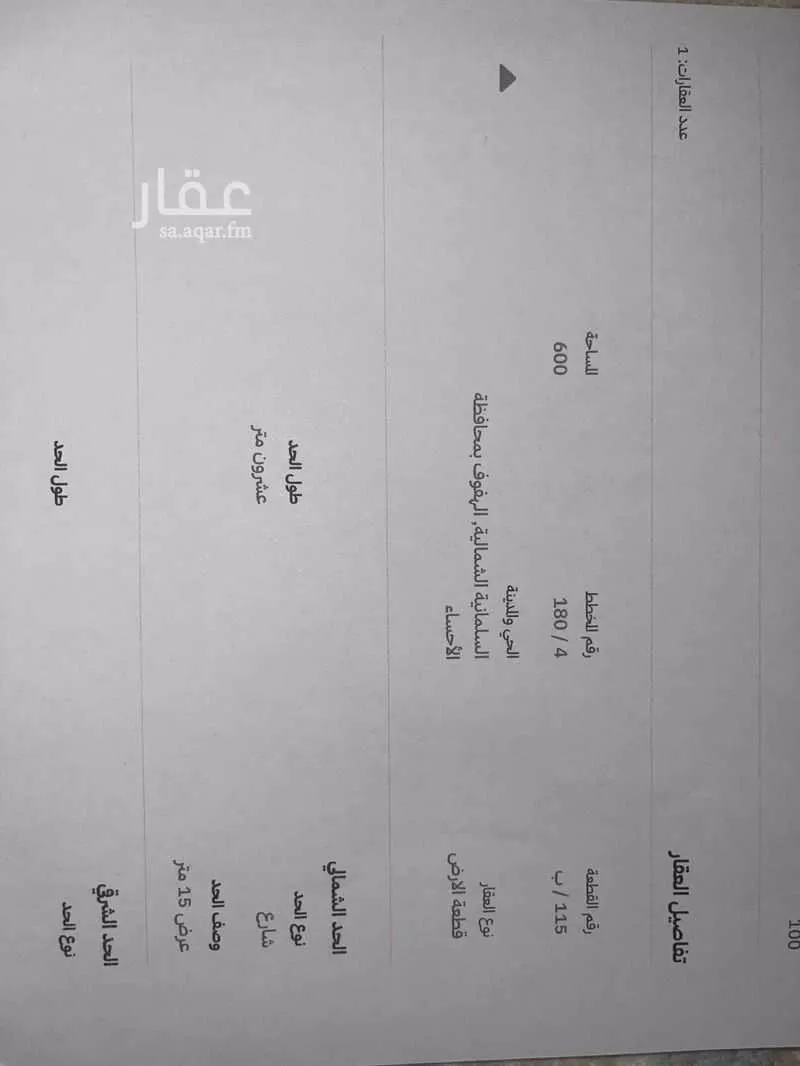 100
تفاصيل العقار
عدد العقارات: 1
رقم القطعة
رقم المخطط
المساحة
115 / ب
180 / 4
600
نوع العقار
الحي والمدينة
قطعة الارض
السلمانية الشمالية, الهفوف بمحافظة
الأحساء
الحد الشمالي
نوع الحد
طول الحد
شارع
عشرون متر
وصف الحد
عرض 15 متر
الحد الشرقي
نوع الحد
طول الحد
عقار
sa.aqar.fm